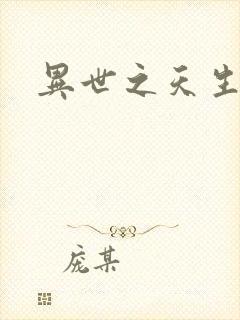 異世之天生
庞某